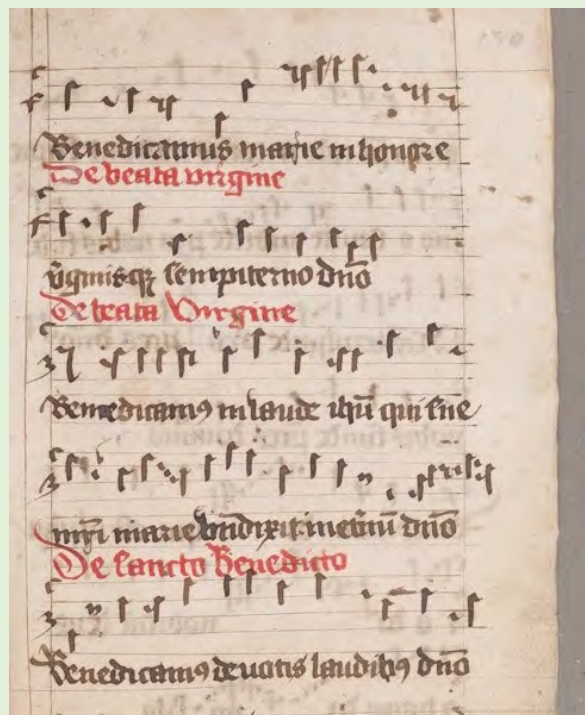 Benedicamus marie in honore
De beata virgine
v̄ginisqꝫ sempiterno dn̄o
de beata Virgine
Benedicamꝰ in laude ihū qui sue
mr̄i marie bn̄dixit in et̄nū dn̄o
De sancto Benedicto
Benedicamꝰ deuotis laudibꝰ dn̄o